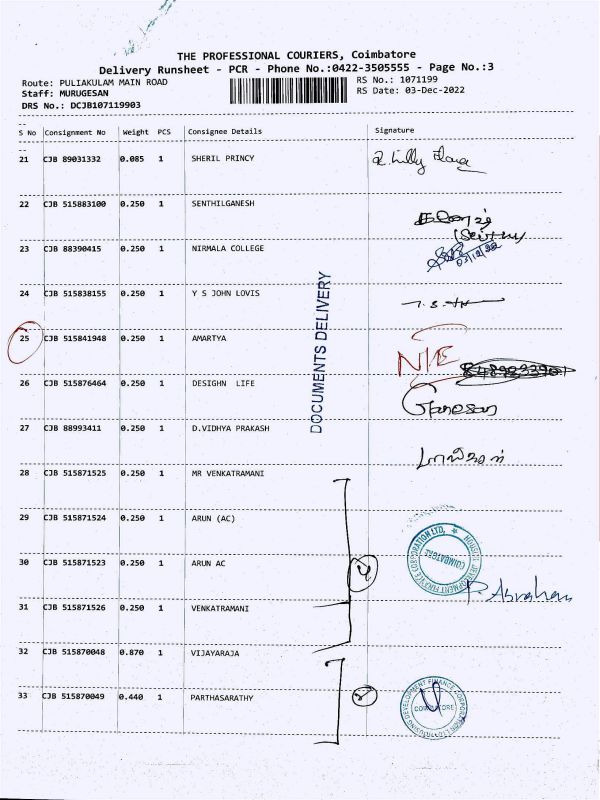 THE PROFESSIONAL COURIERS, Coimbatore
Delivery Runsheet - PCR - Phone No.:0422-3505555 - Page No.:3
Route: PULIAKULAM MAIN ROAD
Staff: MURUGESAN
DRS No.: DCJB107119903
RS No.: 1071199
RS Date: 03-Dec-2022
S No Consignment No Weight PCS Consignee Details Signature
21 CJB 89031332 0.085 1 SHERIL PRINCY
22 CJB 515883100 0.250 1 SENTHILGANESH
23 CJB 88390415 0.250 1 NIRMALA COLLEGE
03/12/22
24 CJB 515838155 0.250 1 Y S JOHN LOVIS
25 CJB 515841948 0.250 1 AMARTYA N/E
26 CJB 515876464 0.250 1 DESIGHN LIFE
27 CJB 88993411 0.250 1 D.VIDHYA PRAKASH
28 CJB 515871525 0.250 1 MR VENKATRAMANI
29 CJB 515871524 0.250 1 ARUN (AC)
30 CJB 515871523 0.250 1 ARUN AC
31 CJB 515871526 0.250 1 VENKATRAMANI
32 CJB 515870048 0.870 1 VIJAYARAJA
33 CJB 515870049 0.440 1 PARTHASARATHY
DOCUMENTS DELIVERY
4
P. Abraham
HOUSING DEVELOPMENT FINANCE CORPORATION LTD.
COIMBATORE
HOUSING DEVELOPMENT FINANCE CORPORATION LTD.
COIMBATORE